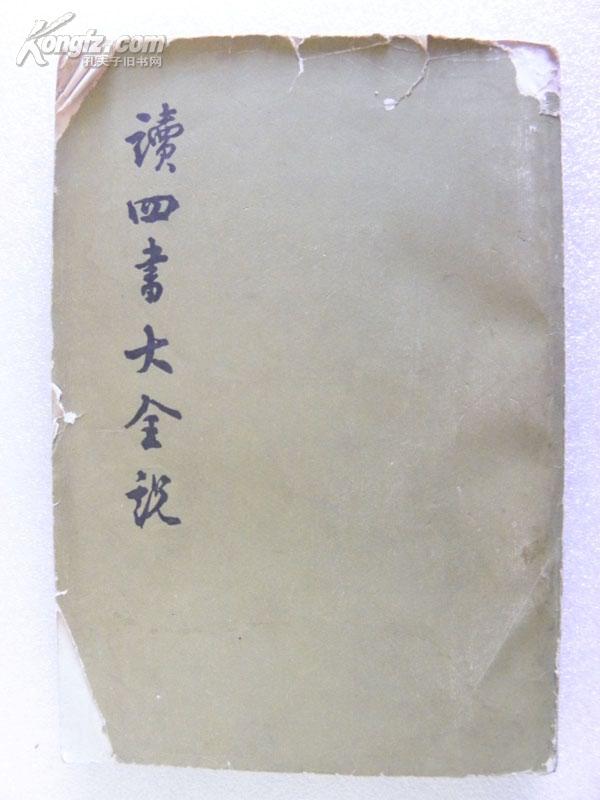 Kongfz.com
孔夫子旧书网
讀四書大全説